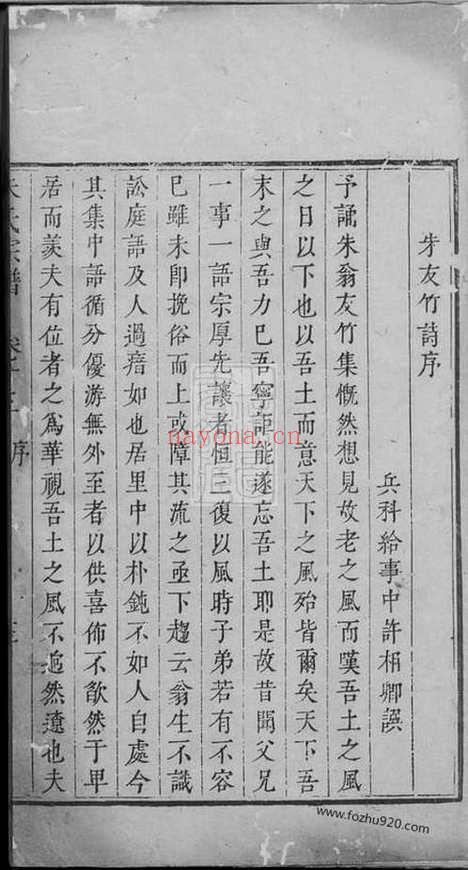 朱友竹詩序
兵科給事中許相卿譔
予誦朱翁友竹集慨然想見故老之風而嘆吾土之風
之日以下也以吾土而意天下之風殆皆爾矣天下吾
末之與吾力已吾寧詎能遂忘吾土耶是故昔聞父兄
一事一語宗厚先讓者恒三復以風時子弟若有不容
已雖未卽挽俗而上或障其流之亟下趨云翁生不識
訟庭語及人過瘖如也居里中以朴鈍不如人自處今
其集中語循分優游無外至者以供喜怖不歆然于甲
居而羨夫有位者之為華視吾土之風不逌然遠也夫
朱氏宗譜 卷 序
nayona.cn
www.fozhu920.com